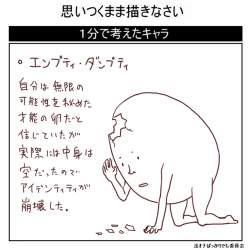 思いつくまま描きなさい
1分で考えたキャラ
○ エンプティ・ダンプティ
自分は無限の
可能性を秘めた
才能の卵だと
信じていたが
実際には中身は
空だったので
アイデンティティが
崩壊した。